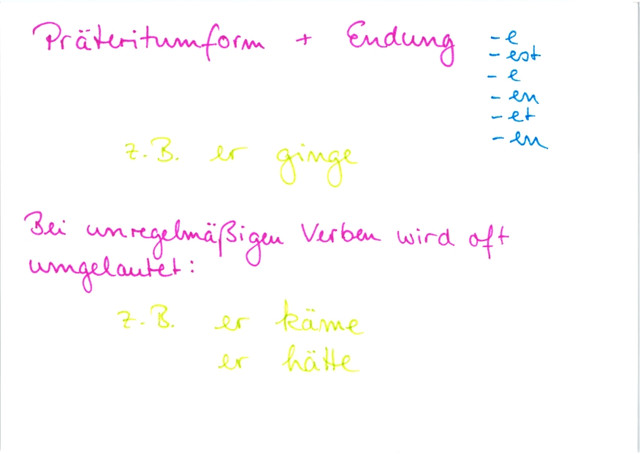 Präteritumform + Endung
- e
- est
- e
- en
- et
- en
z.B. er ginge
Bei unregelmäßigen Verben wird oft
umgelautet:
z.B. er käme
er hätte